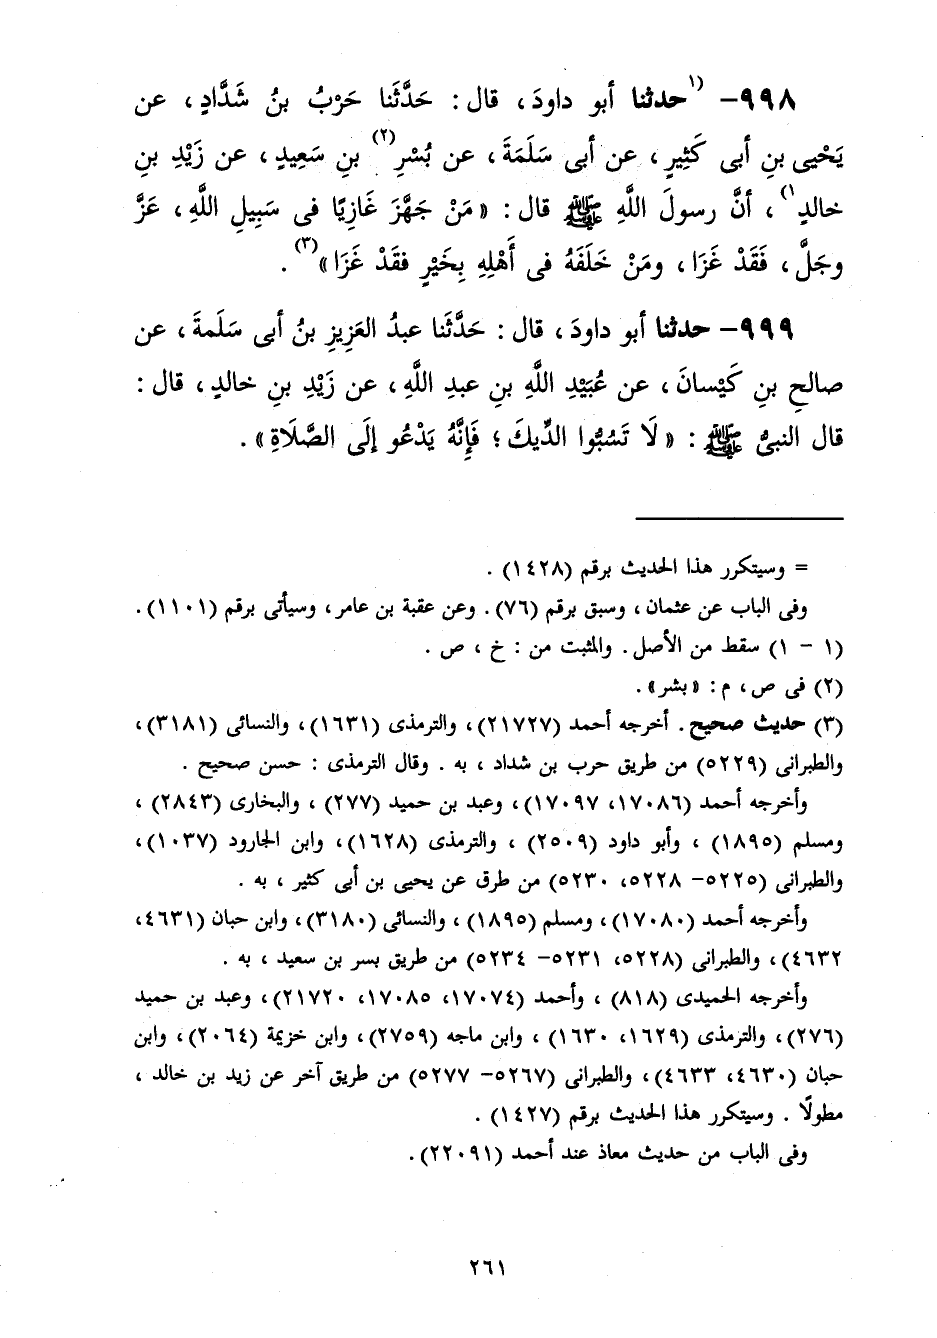 ٩٩٨- (١ حدثنا أبو داودَ ، قال : حَدَّثَنا حَرْبُ بنُ شَدَّادٍ ، عن
يَحْيى بنِ أبى كَثِيرٍ ، عن أبى سَلَمَةَ ، عن بُسْرِ(٢) بنِ سَعِيدٍ ، عن زَيْدِ بنِ
خالدٍ ١) ، أنَّ رسولَ اللَّهِ ﷺ قال : « مَنْ جَهَّزَ غَازِيًا فى سَبِيلِ اللَّهِ ، عَزَّ
وجَلَّ ، فَقَدْ غَزَا ، ومَنْ خَلَفَهُ فى أَهْلِهِ بِخَيْرٍ فقَدْ غَزَا »(٣) .
٩٩٩- حدثنا أبو داودَ ، قال : حَدَّثَنا عبدُ العَزِيزِ بنُ أبى سَلَمةَ ، عن
صالحِ بنِ كَيْسانَ ، عن عُبَيْدِ اللَّهِ بنِ عبدِ اللَّهِ ، عن زَيْدِ بنِ خالدٍ ، قال :
قال النبىُّ ﷺ : « لَا تَسُبُّوا الدِّيكَ ؛ فَإِنَّهُ يَدْعُو إلَى الصَّلَاةِ » .
= وسيتكرر هذا الحديث برقم (١٤٢٨) .
وفى الباب عن عثمان ، وسبق برقم (٧٦) . وعن عقبة بن عامر ، وسيأتى برقم (١١٠١) .
(١ - ١) سقط من الأصل . والمثبت من : خ ، ص .
(٢) فى ص ، م : « بشر » .
(٣) حديث صحيح . أخرجه أحمد (٢١٧٢٧) ، والترمذى (١٦٣١) ، والنسائى (٣١٨١) ،
والطبرانى (٥٢٢٩) من طريق حرب بن شداد ، به . وقال الترمذى : حسن صحيح .
وأخرجه أحمد (١٧٠٨٦، ١٧٠٩٧) ، وعبد بن حميد (٢٧٧) ، والبخارى (٢٨٤٣) ،
ومسلم (١٨٩٥) ، وأبو داود (٢٥٠٩) ، والترمذى (١٦٢٨) ، وابن الجارود (١٠٣٧) ،
والطبرانى (٥٢٢٥- ٥٢٢٨، ٥٢٣٠) من طرق عن يحيى بن أبى كثير ، به .
وأخرجه أحمد (١٧٠٨٠) ، ومسلم (١٨٩٥) ، والنسائى (٣١٨٠) ، وابن حبان (٤٦٣١،
٤٦٣٢) ، والطبرانى (٥٢٢٨، ٥٢٣١- ٥٢٣٤) من طريق بسر بن سعيد ، به .
وأخرجه الحميدى (٨١٨) ، وأحمد (١٧٠٧٤، ١٧٠٨٥، ٢١٧٢٠) ، وعبد بن حميد
(٢٧٦) ، والترمذى (١٦٢٩، ١٦٣٠) ، وابن ماجه (٢٧٥٩) ، وابن خزيمة (٢٠٦٤) ، وابن
حبان (٤٦٣٠، ٤٦٣٣) ، والطبرانى (٥٢٦٧- ٥٢٧٧) من طريق آخر عن زيد بن خالد ،
مطولًا . وسيتكرر هذا الحديث برقم (١٤٢٧) .
وفى الباب من حديث معاذ عند أحمد (٢٢٠٩١) .
٢٦١